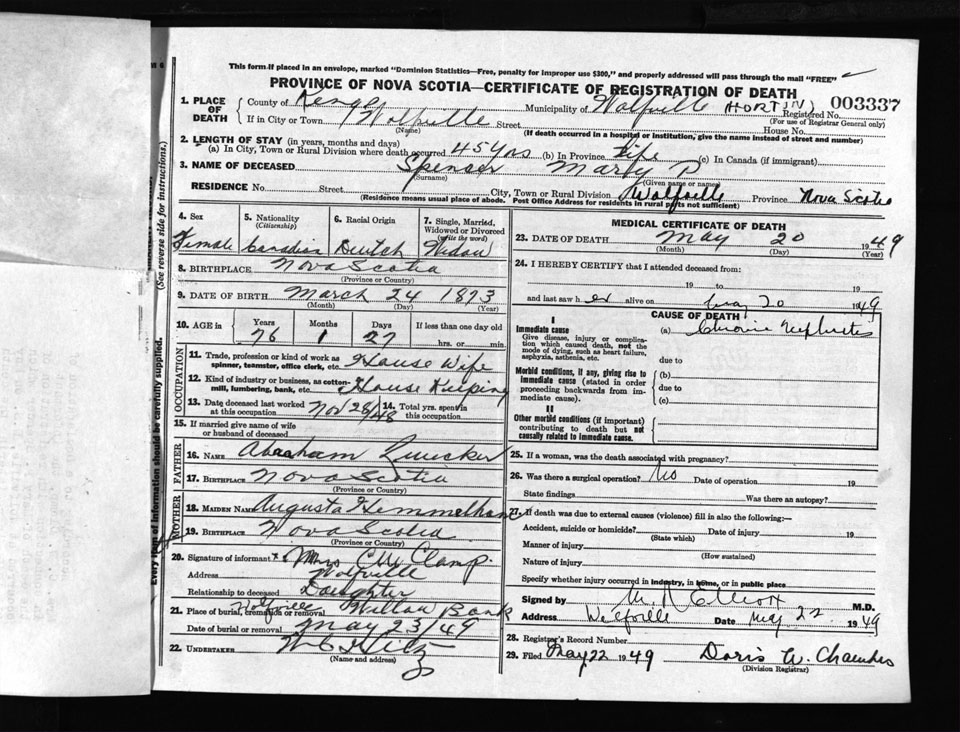 This form if placed in an envelope, marked "Dominion Statistics—Free, penalty for improper use $300," and properly addressed will pass through the mail "FREE"
PROVINCE OF NOVA SCOTIA—CERTIFICATE OF REGISTRATION OF DEATH
1. PLACE OF DEATH
County of Kings Municipality of Wolfville (HORTON) Registered No. 003337
(For use of Registrar General only)
If in City or Town Wolfville Street House No.
(Name) (If death occurred in a hospital or institution, give the name instead of street and number)
2. LENGTH OF STAY (in years, months and days)
(a) In City, Town or Rural Division where death occurred 45 yrs (b) In Province Life (c) In Canada (if immigrant)
3. NAME OF DECEASED Spenser Mary P
(Surname) (Given name or names)
RESIDENCE No. Street City, Town or Rural Division Wolfville Province Nova Scotia
(Residence means usual place of abode. Post Office Address for residents in rural parts not sufficient)
4. Sex
Female
5. Nationality
(Citizenship)
Canadian
6. Racial Origin
Deutch
7. Single, Married, Widowed or Divorced
(write the word)
Widow
8. BIRTHPLACE Nova Scotia
(Province or Country)
9. DATE OF BIRTH March 24 1873
(Month) (Day) (Year)
10. AGE in Years Months Days If less than one day old
76 1 27 hrs. or min.
OCCUPATION
11. Trade, profession or kind of work as spinner, teamster, office clerk, etc. House Wife
12. Kind of industry or business, as cotton-mill, lumbering, bank, etc. House Keeping
13. Date deceased last worked at this occupation Nov 28/48
14. Total yrs. spent in this occupation
15. If married give name of wife or husband of deceased
FATHER
16. NAME Abraham
17. BIRTHPLACE Nova Scotia
(Province or Country)
MOTHER
18. MAIDEN NAME Augusta
19. BIRTHPLACE Nova Scotia
(Province or Country)
20. Signature of informant x Mrs C.W. Clamp.
Address Wolfville
Relationship to deceased Daughter
21. Place of burial, cremation or removal Wolfville Willow Bank
Date of burial or removal May 23/49
22. UNDERTAKER
(Name and address)
MEDICAL CERTIFICATE OF DEATH
23. DATE OF DEATH May 20 1949
(Month) (Day) (Year)
24. I HEREBY CERTIFY that I attended deceased from:
19 to 19
and last saw her alive on May 20 1949
CAUSE OF DEATH
I
Immediate cause
Give disease, injury or complication which caused death, not the mode of dying, such as heart failure, asphyxia, asthenia, etc.
(a) Chronic Nephritis
due to
Morbid conditions, if any, giving rise to immediate cause (stated in order proceeding backwards from immediate cause).
(b)
due to
(c)
II
Other morbid conditions (if important) contributing to death but not causally related to immediate cause.
25. If a woman, was the death associated with pregnancy?
26. Was there a surgical operation? No Date of operation 19
State findings Was there an autopsy?
27. If death was due to external causes (violence) fill in also the following:—
Accident, suicide or homicide? Date of injury 19
(State which)
Manner of injury
(How sustained)
Nature of injury
Specify whether injury occurred in industry, in home, or in public place
Signed by Elliott M.D.
Address Wolfville Date May 22 1949
28. Registrar's Record Number
29. Filed May 22 1949 Doris W. Chambers
(Division Registrar)
(See reverse side for instructions.)
Every item of information should be carefully supplied.